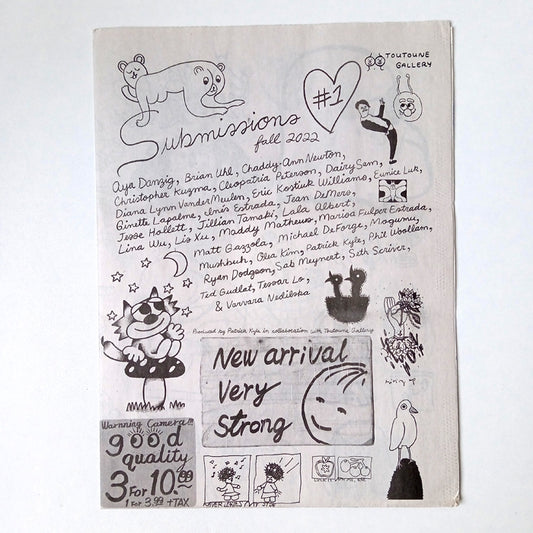 TOUTOUNE
GALLERY
#1
Submissions
fall 2022
Aya Danzig, Brian Uhl, Chaddy-Ann Newton,
Christopher Kuzma, Cleopatria Peterson, Dairy Sam,
Diana Lynn VanderMeulen, Eric Kostiuk Williams, Eunice Luk,
Ginette Lapalme, Inés Estrada, Jean DeMers,
Jesse Hallett, Jillian Tamaki, Lala Albert,
Lina Wu, Lio Xu, Maddy Mathews, Marisa Fulper Estrada,
Matt Gazzola, Michael DeForge, Mogumu,
Mushbuh, Olea Kim, Patrick Kyle, Phil Woollam,
Ryan Dodgson, Sab Meynert, Seth Scriver,
Ted Gudlat, Tessar Lo,
& Varvara Nedilska
Produced by Patrick Kyle in collaboration with Toutoune Gallery
New arrival
Very
Strong
Warnning Camera!!!
good
quality
3 For 10.99
1 For 3.99 + TAX